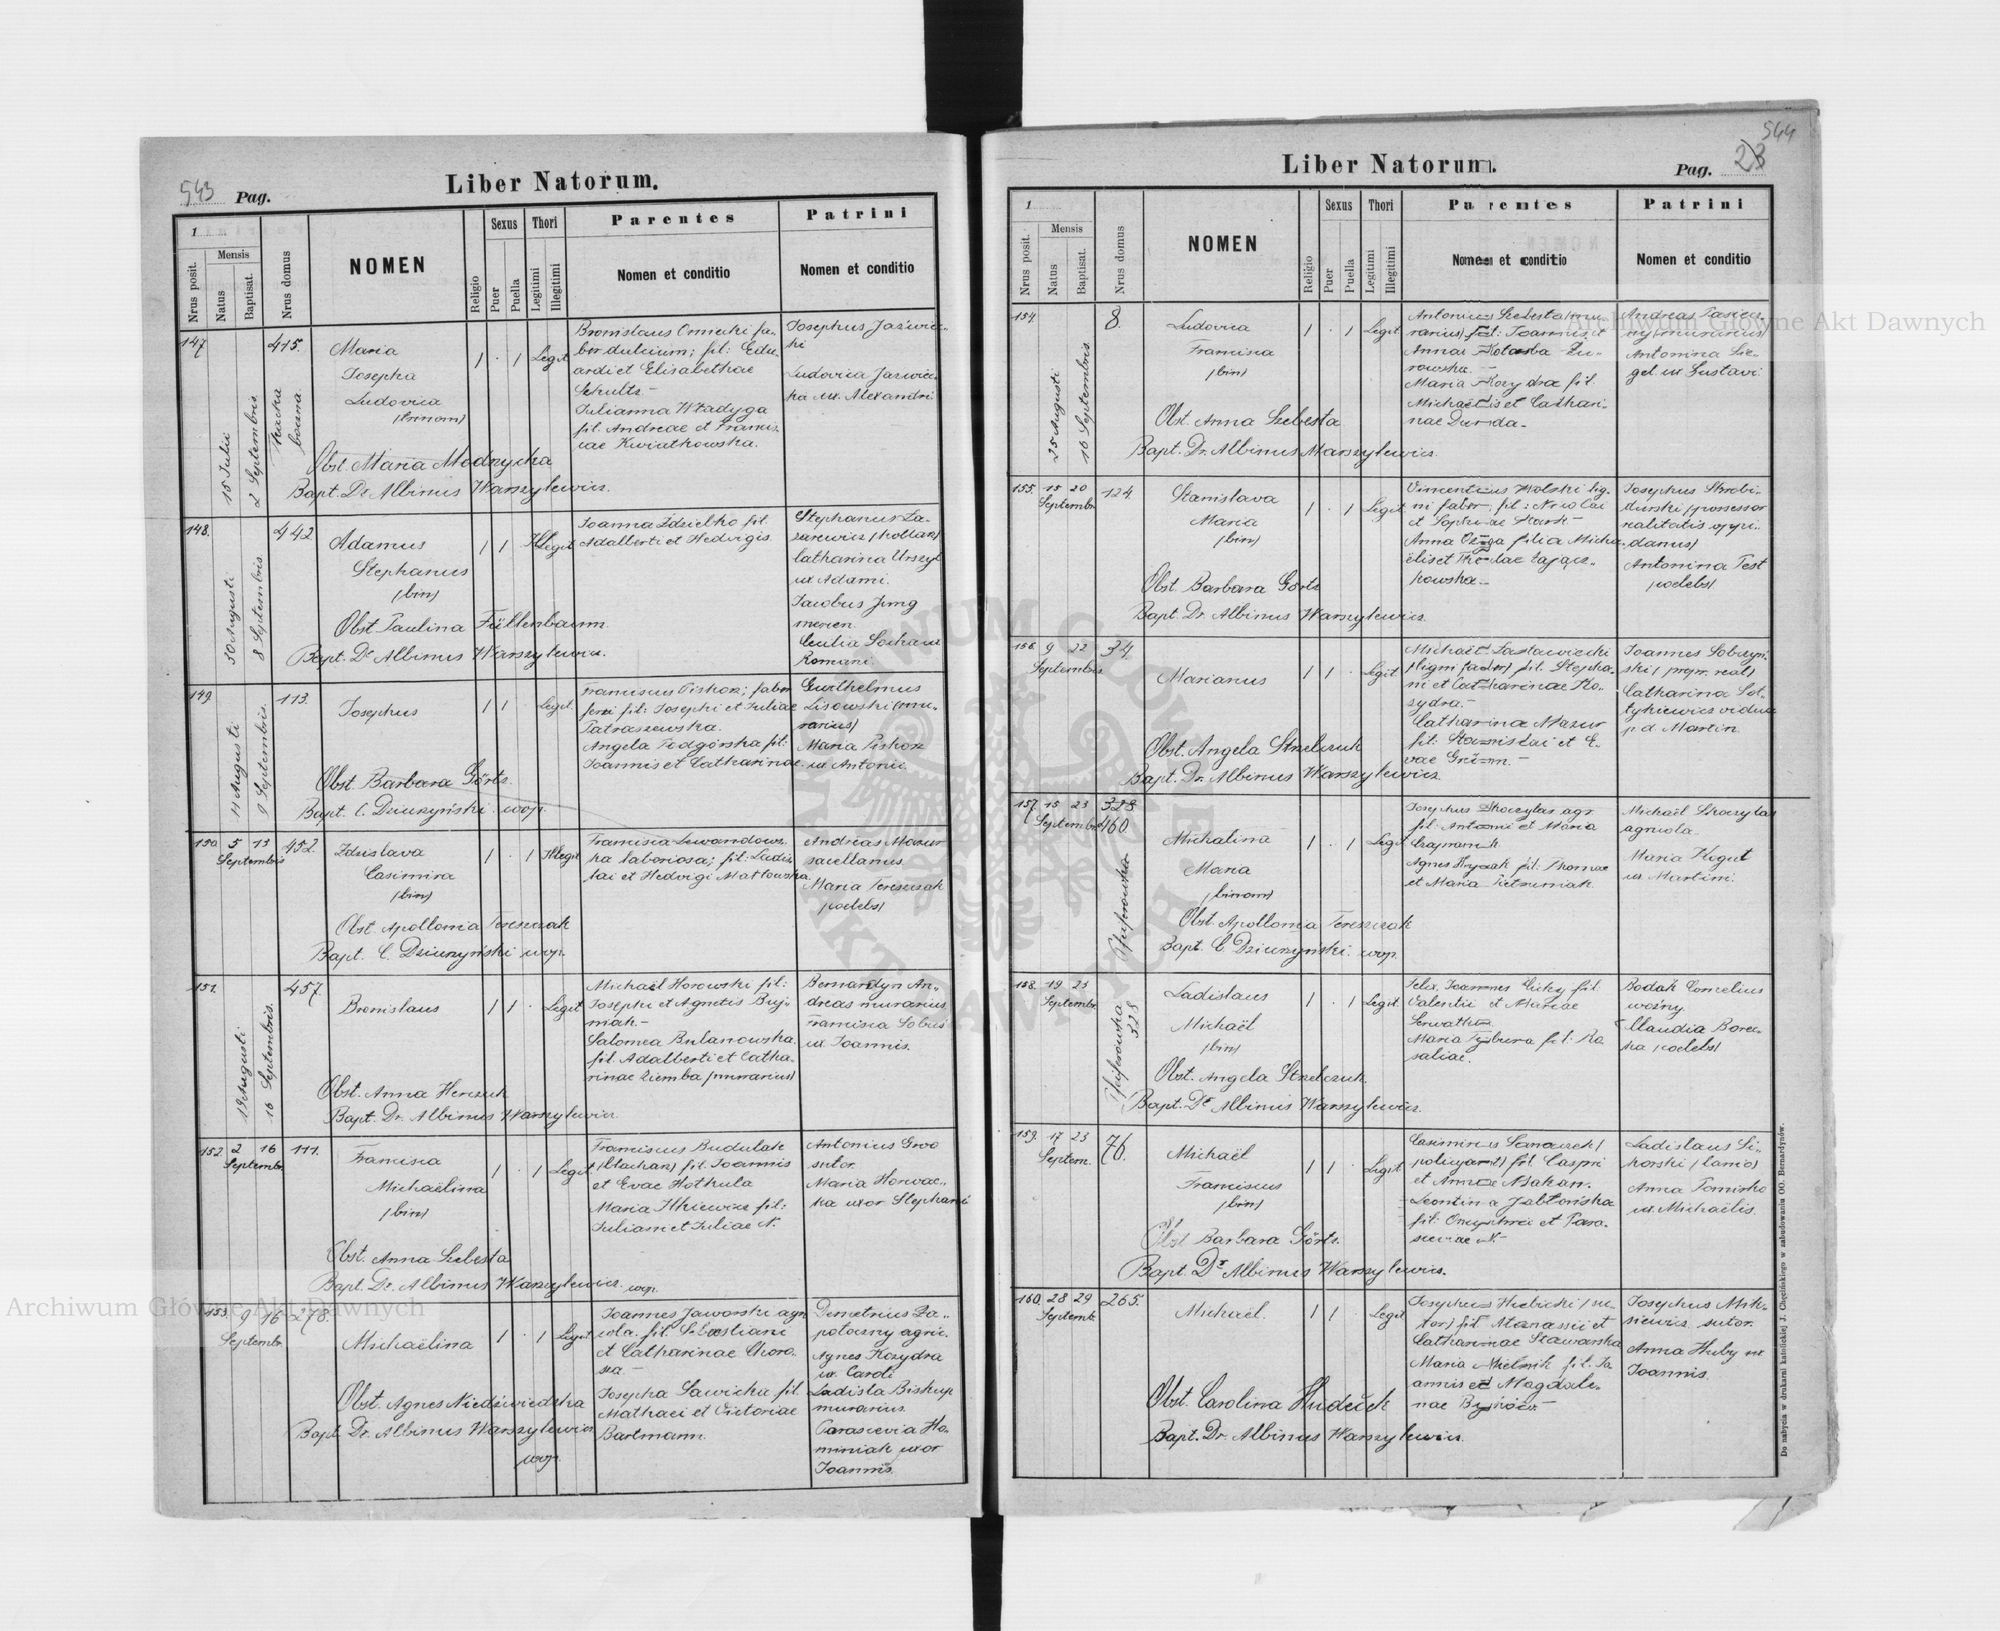 543 Pag.
Liber Natorum.
1
Nrus posit.
Mensis
Natus
Baptisat.
Nrus domus
NOMEN
Religio
Sexus
Puer
Puella
Thori
Legitimi
Illegitimi
Parentes
Nomen et conditio
Patrini
Nomen et conditio
147.
15 Julii
2 Septembris
415.
Maria
Josepha
Ludovica
Obst. Maria Modrzycka
Bapt. Dr Albinus Warszylewicz.
1 . 1 Legit
Bronislaus
ber dulcium; fil: Edu-
ardi et Elisabethae
Schultz –
Julianna Władyga
fil. Andreae et Francis-
cae Kwiatkowska.
Josephus
ki
Ludovica
ka ux. Alexandri
148.
30 Augusti
8 Septembris
442
Adamus
Stephanus
(bin)
Obst. Paulina Füllenbaum.
Bapt. Dr Albinus Warszylewicz.
1 1 Illegit
Joanna Zdziełko fil.
Adalberti et Hedvigis.
Stephanus Ła-
zarewicz
Catharina
ux Adami.
Jacobus Jung
Cecilia
Romani.
149.
11 Augusti
9 Septembris.
113.
Josephus
Obst. Barbara Görtz.
Bapt. C. Dziurzyński wop.
1 1 Legit.
Franciscus Piskorz; faber
ferri fil: Josephi et Juliae
Patraszewska.
Angela Podgórska fil:
Joannis et Catharinae.
Guilhelmus
Lisowski (mu-
rarius)
Maria Piskorz
ux Antonii.
150. 5 13
Septembris
452.
Zdzislava
Casimira
(bin)
Obst. Apollonia Tereszczak
Bapt. C. Dziurzyński wop.
1 . 1 Illegit
Francisca Lewandows-
ka laboriosa; fil. Ladis-
lai et Hedvigi Matłowska.
Andreas Mazur
sacellanus.
Maria Tereszczak
(coelebs)
151.
19 Augusti
16 Septembris.
457.
Bronislaus
Obst. Anna Herczuk
Bapt. Dr. Albinus Warszylewicz.
1 1 . Legit
Michaël Horowski fil:
Josephi et Agnetis Buj-
niak. –
Salomea Bulanowska.
fil. Adalberti et Catha-
rinae Ziemba (murarius)
Bernardyn An-
dreas murarius
Francisca Sobus
ux Joannis.
152. 2 16
Septembr.
111.
Francisca
Michaëlinna
(bin)
Obst. Anna Szebesta
Bapt. Dr. Albinus Warszylewicz. wop.
1 . 1 Legit
Franciscus Budulak
fil. Joannis
et Evae Hothula
Maria Ilkiewicz fil:
Juliani et Juliae N.
Antonius
sutor.
Maria Horwac-
ka uxor Stephani
153. 9 16
Septembr.
278.
Michaëlina
Obst. Agnes Niedźwiedzka
Bapt. Dr. Albinus Warszylewicz
wop.
1 . 1 Legit
Joannes Jaworski agri
cola. fil. Sebastiani
et Catharinae
Josepha Sawicka fil.
Mathaei et Victoriae
Bartmann.
Demetrius Za-
potoczny agric.
Agnes Kozydra
ux. Caroli
Ladisla Biskup
murarius.
Parascevia Ho-
miniak uxor
Joannis.
544
23
Pag.
Liber Natorum.
1
Nrus posit.
Mensis
Natus
Baptisat.
Nrus domus
NOMEN
Religio
Sexus
Puer
Puella
Thori
Legitimi
Illegitimi
Parentes
Nomen et conditio
Patrini
Nomen et conditio
154.
25 Augusti
16 Septembris.
8.
Ludovica
Francisca
(bin)
Obst. Anna Szebesta
Bapt. Dr. Albinus Warszylewicz.
1 . 1 Legit
Antonius Szebesta (mu-
rarius) fil: Joannis et
Annae Kotarba
rowska. –
Maria Kozydra fil.
Michaëlis et Cathari-
nae Durda –
Andreas
(murarius)
Antonina Sie-
gel. ux Gustavi
155. 15 20
Septembr.
124
Stanislava
Maria
(bin)
Obst. Barbara Görtz
Bapt. Dr. Albinus Warszylewicz.
1 . 1 Legit.
Vincentius Wolski lig-
ni faber fil: Nicolai
et Sophiae
Anna filia Micha-
ëlis et Theclae Zającz-
kowska –
Josephus Skrobi-
(possessor
realitatis oppi-
danus)
Antonina Test
(coelebs)
156. 9 22
Septembris
34.
Marianus
Obst. Angela Strzelczuk
Bapt. Dr. Albinus Warszylewicz
1 1 . Legit
Michaël Zasławiecki
(ligni faber) fil. Stepha-
ni et Catharinae Ko-
zydra. –
Catharina Mazur
fil: Stanislai et E-
vae Grimm. –
Joannes Sobczyń-
ski (propr. real)
Catharina Soł-
tykiewicz vidua
p.d. Martin.
157. 15 23
Septembr.
328
460
Pfuferowska
Michalina
Maria
(binom)
Obst. Apollonia Tereszczak
Bapt. C. Dziurzyński. wop.
1 . 1 Legit
Josephus Skoczylas agr.
fil: Antonii et Maria
Agnes fil. Thomae
et Maria
Michaël Skoczylas
agricola.
Maria Kogut
ux Martini.
158. 19 23
Septembr.
Pfuferowska
328
Ladislaus
Michaël
(bin)
Obst. Angela Strzelczuk.
Bapt. Dr Albinus Warszylewicz.
1 . 1 Legit.
Felix Joannes Cichy fil.
Valentii et Mariae
Serwatka
Maria Tybura fil: Ro
saliae.
Bodak Cornelius
woźny.
Claudia Borec-
ka (coelebs)
159. 17 23
Septem.
76.
Michaël
Franciscus
(bin)
Obst Barbara Görtz.
Bapt. Dr Albinus Warszylewicz.
1 1 . Legit
Casimirus
policyant) fil. Caspri
et Annae Mahan.
Leontina Jabłońska
fil: Onuphrii et Para-
sceviae N –
Ladislaus Si-
korski (lanio)
Anna Tomisko
ux. Michaëlis.
160. 28 29
Septemb.
265.
Michaël.
Obst. Carolina Hudeček
Bapt. Dr. Albinus Warszylewicz.
1 1 Legit
Josephus Hubicki (su-
tor) fil Atanassii et
Catharinae Stawarska
Maria Mielnik fil. Jo
annis et Magdale-
nae
Josephus Mik-
siewicz sutor.
Anna Huby ux
Joannis.
Do nabycia w drukarni katolickiej J. Chęcińskiego w zabudowaniu OO. Bernardynów.
Archiwum Główne Akt Dawnych
Archiwum Główne Akt Dawnych
ARCHIWUM GŁÓWNE AKT DAWNYCH